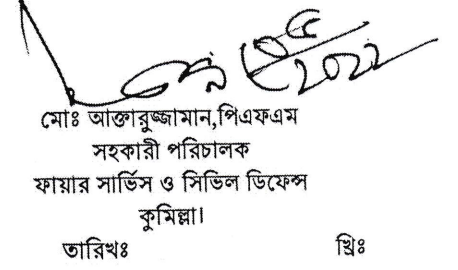 মোঃ আক্তারুজ্জামান,পিএফএম
সহকারী পরিচালক
ফায়ার সার্ভিস ও সিভিল ডিফেন্স
কুমিল্লা।
তারিখঃ খ্রিঃ